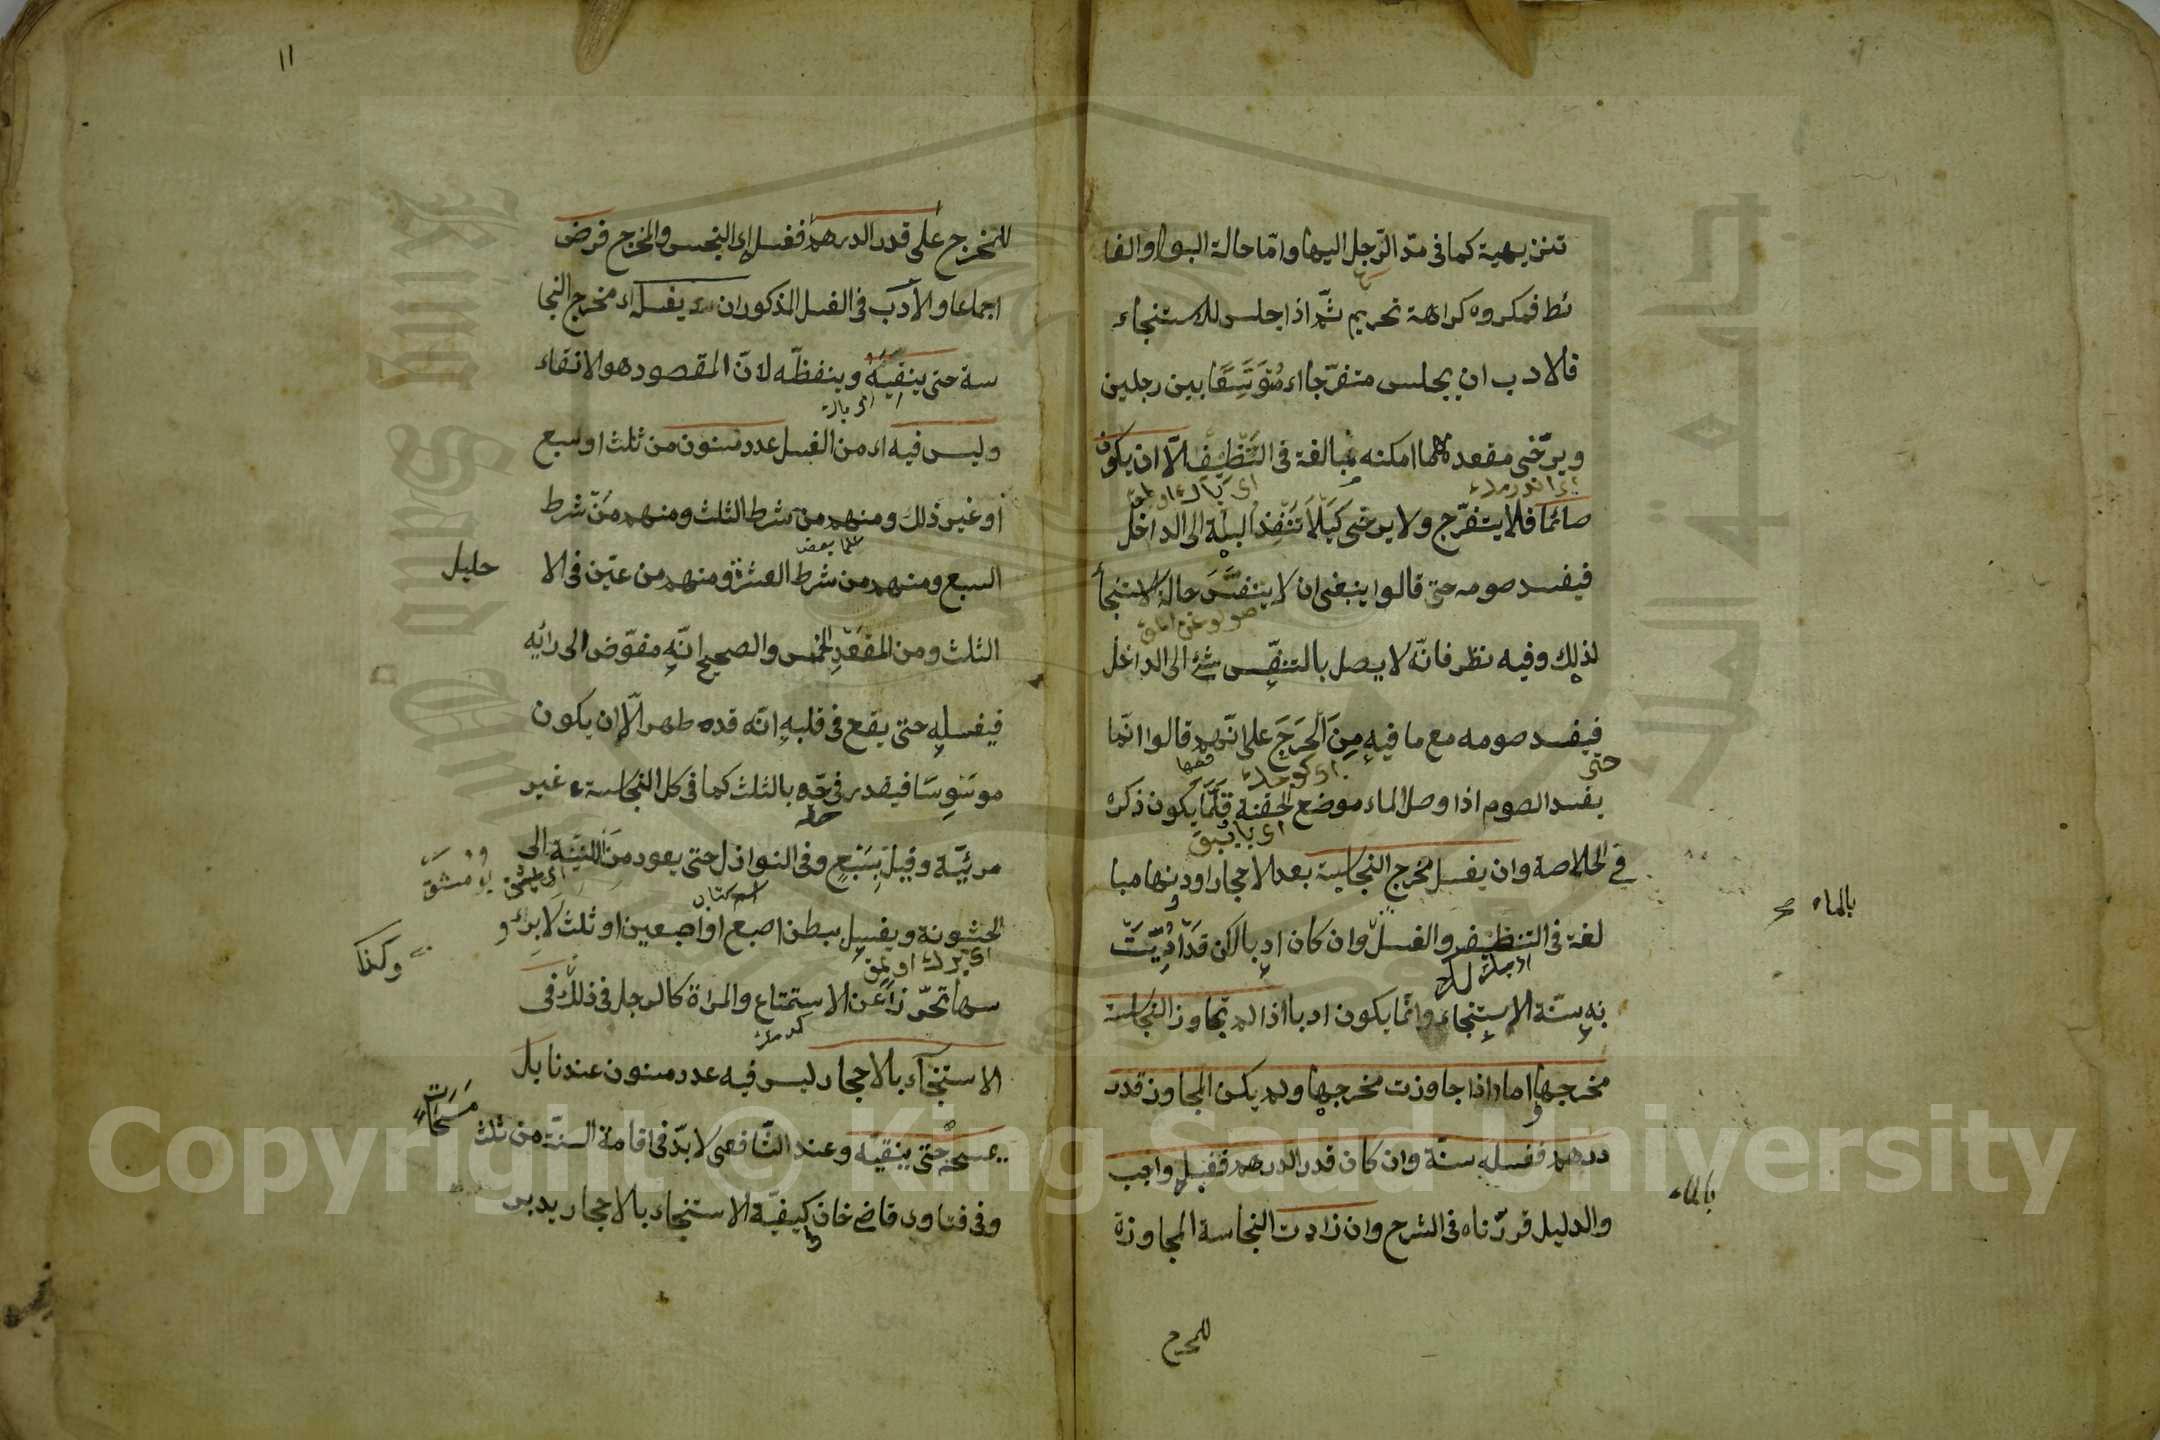 تنزيهية كما فى مدّ الرّجل اليها وامّا حالة البول والغا
ئط فمكروه كراهة تحريم ثمّ اذا جلس للاستنجاء
فالادب ان يجلس متفرّجا اى متوسّعا بين رجلين
ويرّخى مقعده مهما امكنه مبالغة فى التّنظيف الاّ ان يكون
صائما فلا يتفرّج ولا يرخى كيلا تنفذ البلة الى الداخل
فيفسد صومه حتى قالوا ينبغى ان لا يتنفّس حالة الاستنجأ
لذلك وفيه نظر فانّه لا يصل بالتنفّس شئ الى الداخل
فيفسد صومه مع ما فيه من الحرج على انّهم قالوا انّما
حتى
يفسد الصوم اذا وصل الماء موضع الحقنة قلّما يكون ذكره
فى الخلاصة وان يغسل مخرج النجاسة بعد الاحجار او دونها مبا
بالماء صح
لغة فى التنظيف والغسل وان كان ادبا لكن قد ادّيت
به سنّة الاستنجاء وانّما يكون ادبا اذا لم تجاوز النجاسة
مخرجها امّا اذا جاوزت مخرجها ولم يكن المجاوز قدر
درهم فغسله سنّة وان كان قدر الدرهم فغسله واجب
بالماء
والدليل قرّرناه فى الشرح وان زادت النجاسة المجاوزة
للمخرج
١١
للمخرج على قدر الدرهم فغسل اى النجس والمخرج فرض
اجماعا والأدب فى الغسل المذكور ان يغسله اى مخرج النجا
سة حتى ينقيه وينظفه لانّ المقصود هو الانقاء
وليس فيه اى من الغسل عدد مسنون من ثلث او سبع
او غير ذلك ومنهم من شرط الثلث ومنهم من شرط
السبع ومنهم من شرط العشرة ومنهم من عيّن فى الا
حليل
الثلث ومن المقعد الخمس والصحيح انّه مفوّض الى رائه
فيغسله حتى يقع فى قلبه انّه قد طهر الاّ ان يكون
موسوسا فيقدر فى حقّه بالثلث كما فى كل النجاسة غير
مرئيّة وقيل بسبع وفى النوازل حتى يعود من اللينة الى
اسم كتاب
الخشونة ويغسل ببطن اصبع او اصبعين او ثلث لا برؤ
سها تحرّزا عن الاستمتاع والمراة كالرجل فى ذلك فى
وكذا
الاستنجاء بالاحجار ليس فيه عدد مسنون عندنا بل
يمسحه حتى ينقيّه وعند الشّافعى لا بدّ فى اقامة السنّة من ثلث
مسحات
وفى فتاوى قاضى خان كيفيّة الاستنجاء بالاحجار يدبر